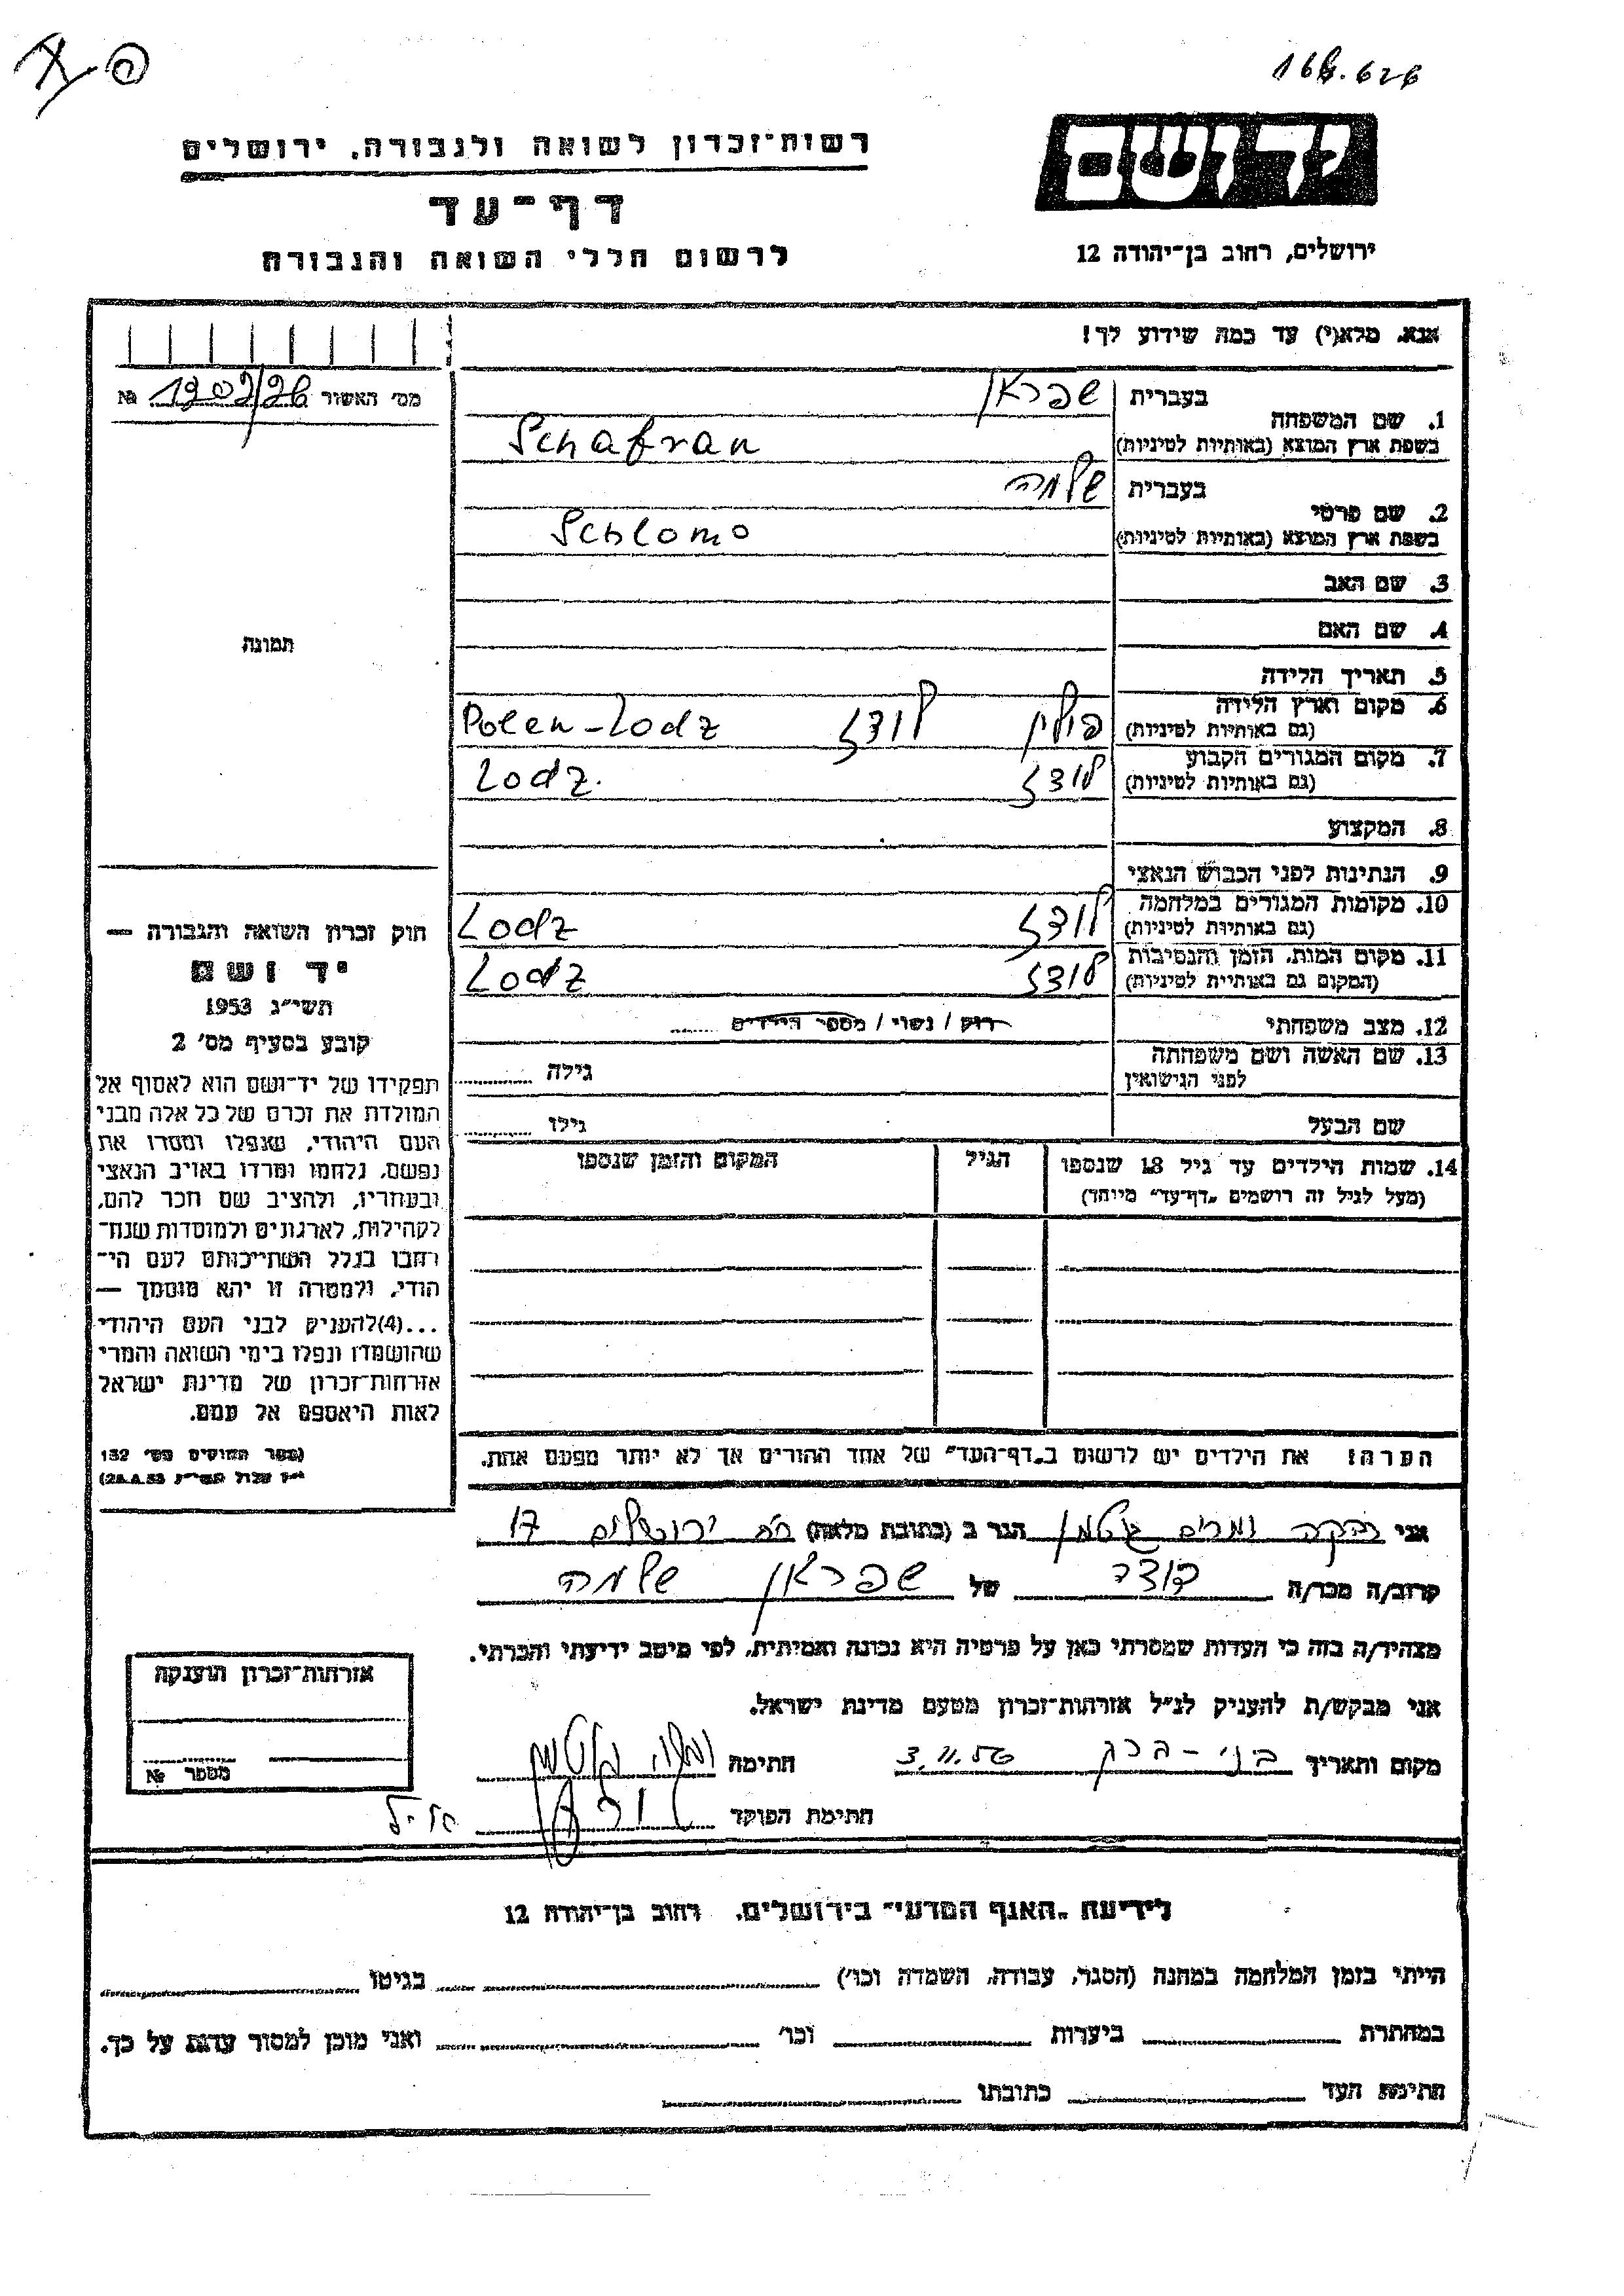 רשות־זכרון לשואה ולגבורה, ירושלים
דף־עד
לרשום חללי השואה והגבורה
יד ושם
ירושלים, רחוב בן־יהודה 12
אנא, מלא(י) עד כמה שידוע לך!
מס׳ האשור 1909/26 №
1. שם המשפחה
בעברית שפראן
בשפת ארץ המוצא (באותיות לטיניות) Schafran
2. שם פרטי
בעברית שלמה
בשפת ארץ המוצא (באותיות לטיניות) Schlomo
3. שם האב
4. שם האם
תמונה
5. תאריך הלידה
6. מקום וארץ הלידה
(גם באותיות לטיניות) פולין לודז Polen-Lodz
7. מקום המגורים הקבוע
(גם באותיות לטיניות) לודז Lodz.
8. המקצוע
9. הנתינות לפני הכבוש הנאצי
10. מקומות המגורים במלחמה
(גם באותיות לטיניות) לודז Lodz
11. מקום המות, הזמן והנסיבות
(המקום גם באותיות לטיניות) לודז Lodz
12. מצב משפחתי רוק / נשוי / מספר הילדים
13. שם האשה ושם משפחתה
לפני הנישואין גילה
שם הבעל גילו
14. שמות הילדים עד גיל 18 שנספו הגיל המקום והזמן שנספו
(מעל לגיל זה רושמים „דף־עד״ מיוחד)
חוק זכרון השואה והגבורה —
יד ושם
תשי״ג 1953
קובע בסעיף מס׳ 2
תפקידו של יד־ושם הוא לאסוף אל
המולדת את זכרם של כל אלה מבני
העם היהודי, שנפלו ומסרו את
נפשם, נלחמו ומרדו באויב הנאצי
ובעוזריו, ולהציב שם וזכר להם,
לקהילות, לארגונים ולמוסדות שנח־
רבו בגלל השתייכותם לעם הי־
הודי, ולמטרה זו יהא מוסמך —
...(4)להעניק לבני העם היהודי
שהושמדו ונפלו בימי השואה והמרי
אזרחות־זכרון של מדינת ישראל
לאות היאספם אל עמם.
(ספר החוקים מס׳ 132
י״ז אלול תשי״ג 28.8.53)
הערה: את הילדים יש לרשום ב„דף־העד״ של אחד ההורים אך לא יותר מפעם אחת.
אני רבקה ומרים גוטמן הגר ב (כתובת מלאה) רח ירושלים 17
קרוב/ה מכר/ה של שפראן שלמה
מצהיר/ה בזה כי העדות שמסרתי כאן על פרטיה היא נכונה ואמיתית, לפי מיטב ידיעתי והכרתי.
אני מבקש/ת להעניק לנ״ל אזרחות־זכרון מטעם מדינת ישראל.
מקום ותאריך בני-ברק 3.11.56 חתימה
חתימת הפוקד
אזרחות־זכרון הוענקה
מספר №
לידיעת „האגף המדעי״ בירושלים, רחוב בן־יהודה 12
הייתי בזמן המלחמה במחנה (הסגר, עבודה, השמדה וכו׳) בגיטו
במחתרת ביערות וכו׳ ואני מוכן למסור עדות על כך.
חתימת העד כתובתו